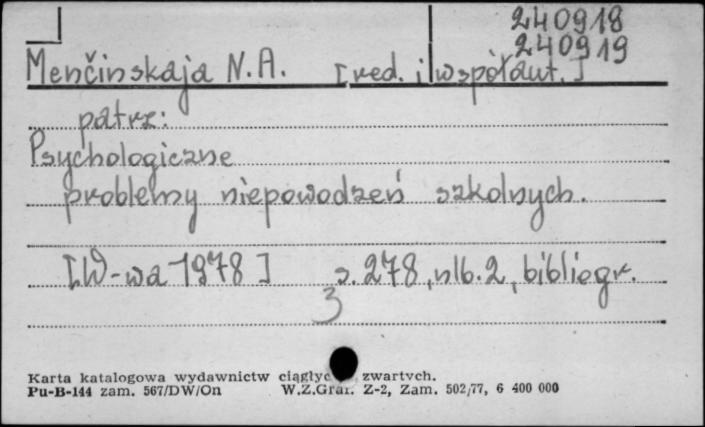 240918
240919
Menčinskaja N.A. [red. i współaut.]
patrz:
Psychologiczne
problemy niepowodzeń szkolnych.
[W-wa 1978] s. 278, nlb. 2, bibliogr.
3
Karta katalogowa wydawnictw ciągłyc zwartych.
Pu-B-144 zam. 567/DW/On W.Z.Graf. Z-2, Zam. 502/77, 6 400 000